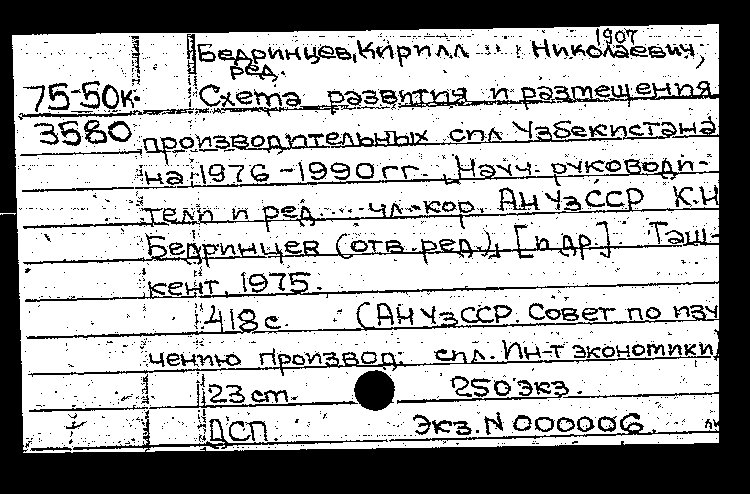 1907
Бедринцев, Кирилл Николаевич,
ред.
75-50к. Схема развития и размещения
3580 производительных сил Узбекистана
на 1976-1990 гг. [Науч. руководи-
тели и ред. ... чл.-кор. АН УзССР К.Н
Бедринцев (отв. ред.), [и др.]. Таш-
кент, 1975.
418 с. (АН УзССР. Совет по изу
чению производ. сил. Ин-т экономики)
23 cm. 250 экз.
ДСП. Экз. N 000006.